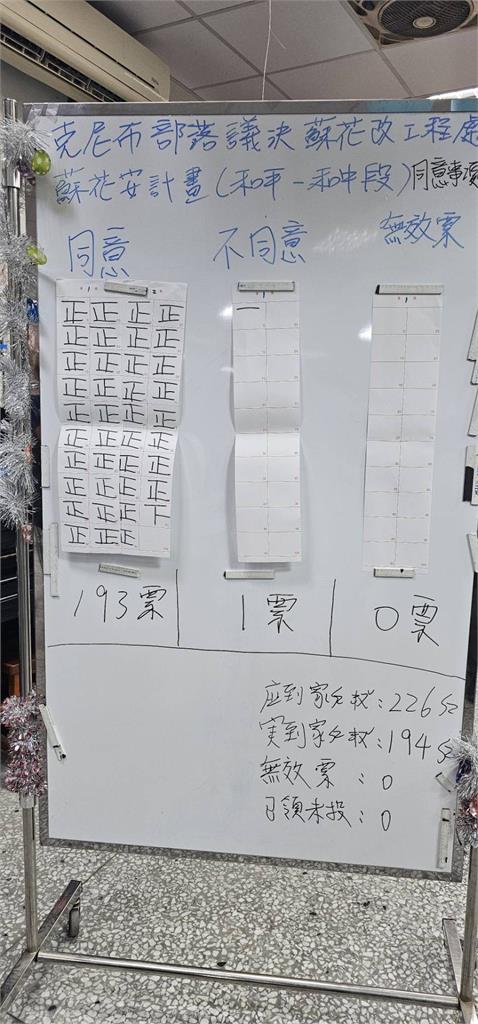 克尼布部落議決蘇花改工程處
蘇花安計畫(和平-和中段)同意事項
同意 不同意 無效票
正正正正 一
正正正正
正正正正
正正正正
正正正正
正正正正
正正正正
正正正正
正正正下
正正正
193票 1票 0票
应到家戶数:226戶
実到家戶数:194戶
無效票:0
已領未投:0